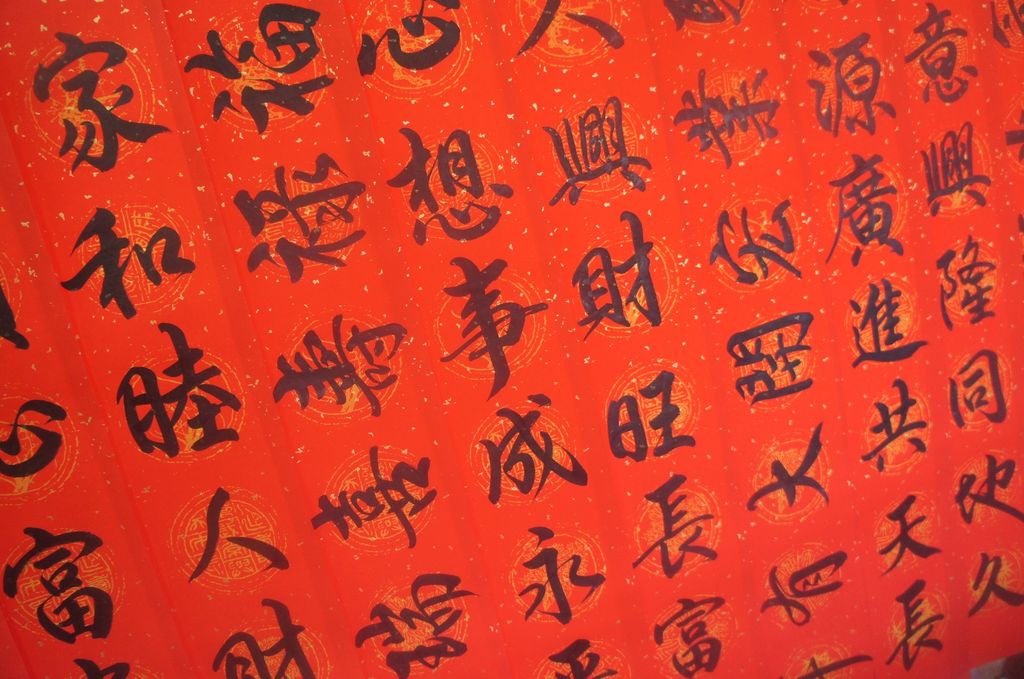 意興隆同地久
源廣進共天長
業宏圖大有
人興財旺長富
心想事成永平
福祿壽
家和睦人財
心富